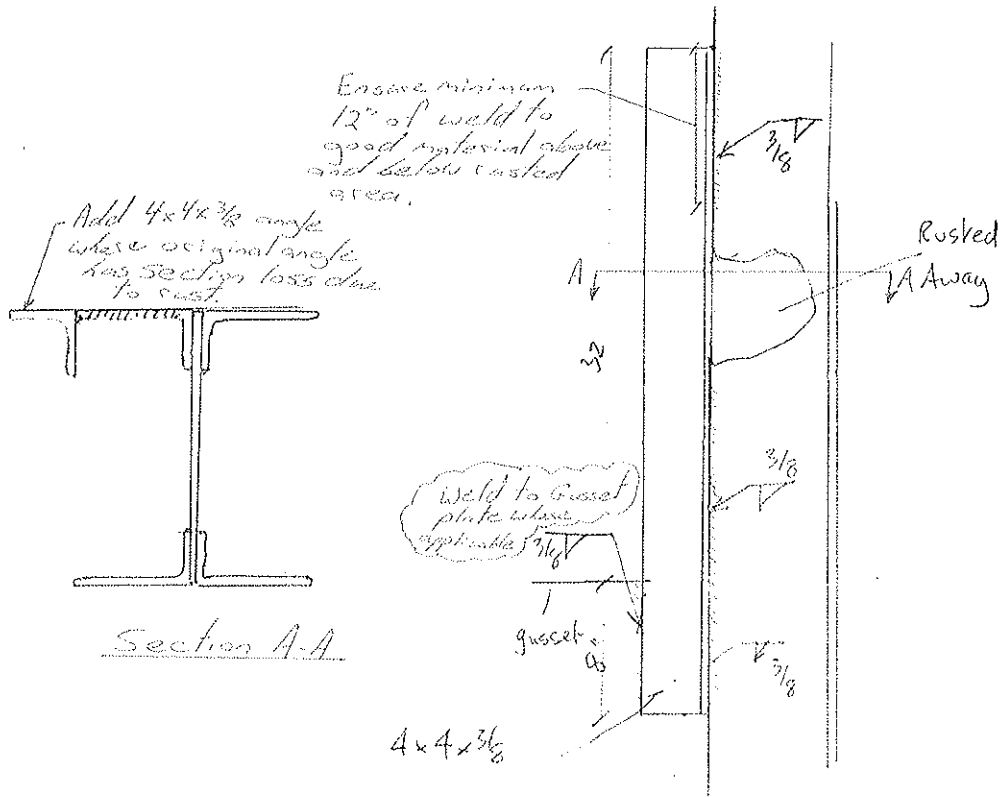 Ensure minimum
12" of weld to
good material above
and below rusted
area.
3/8
Add 4x4x3/8 angle
where original angle
has section loss due
to rust.
Rusted
Away
A
A
32
3/8
Weld to Gusset
plate where
applicable
3/8
gusset
8"
3/8
Section A-A
4x4x3/8